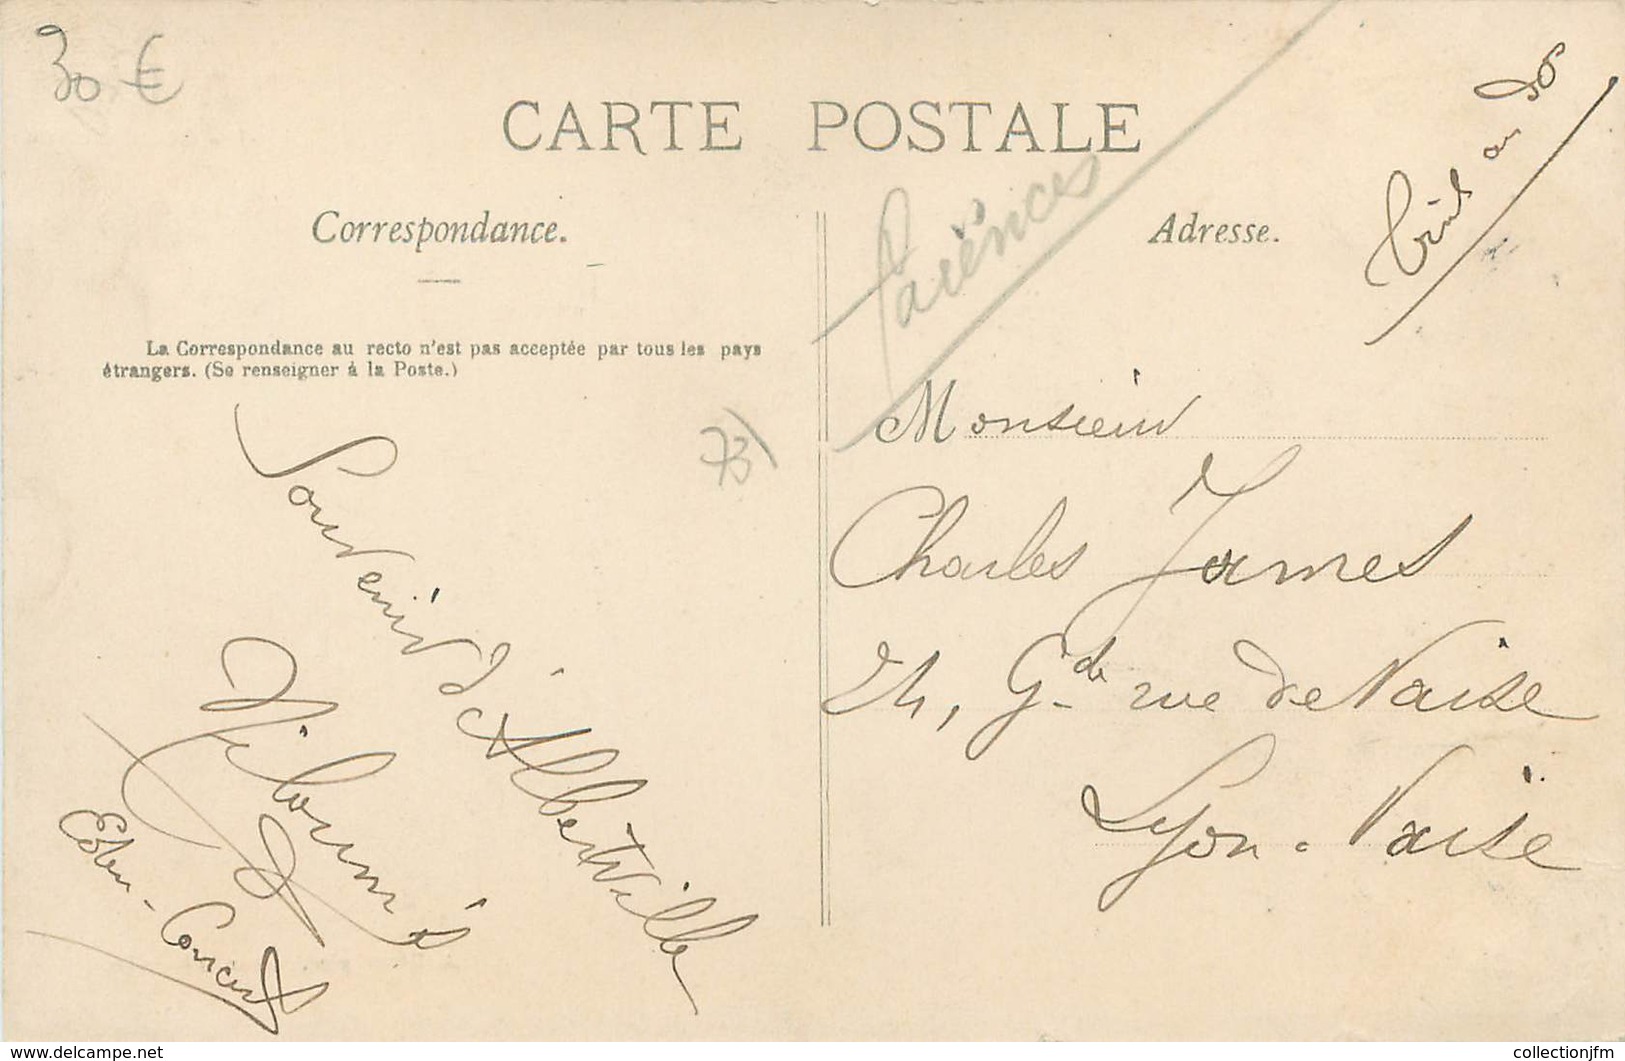 30 €
CARTE POSTALE
Correspondance.
Adresse.
La Correspondance au recto n'est pas acceptée par tous les pays
étrangers. (Se renseigner à la Poste.)
73
Souvenir
d'Albertville
Eden-Concert
Monsieur
Charles James
24, Gde rue de Vaise
Lyon-Vaise
collectionjfm